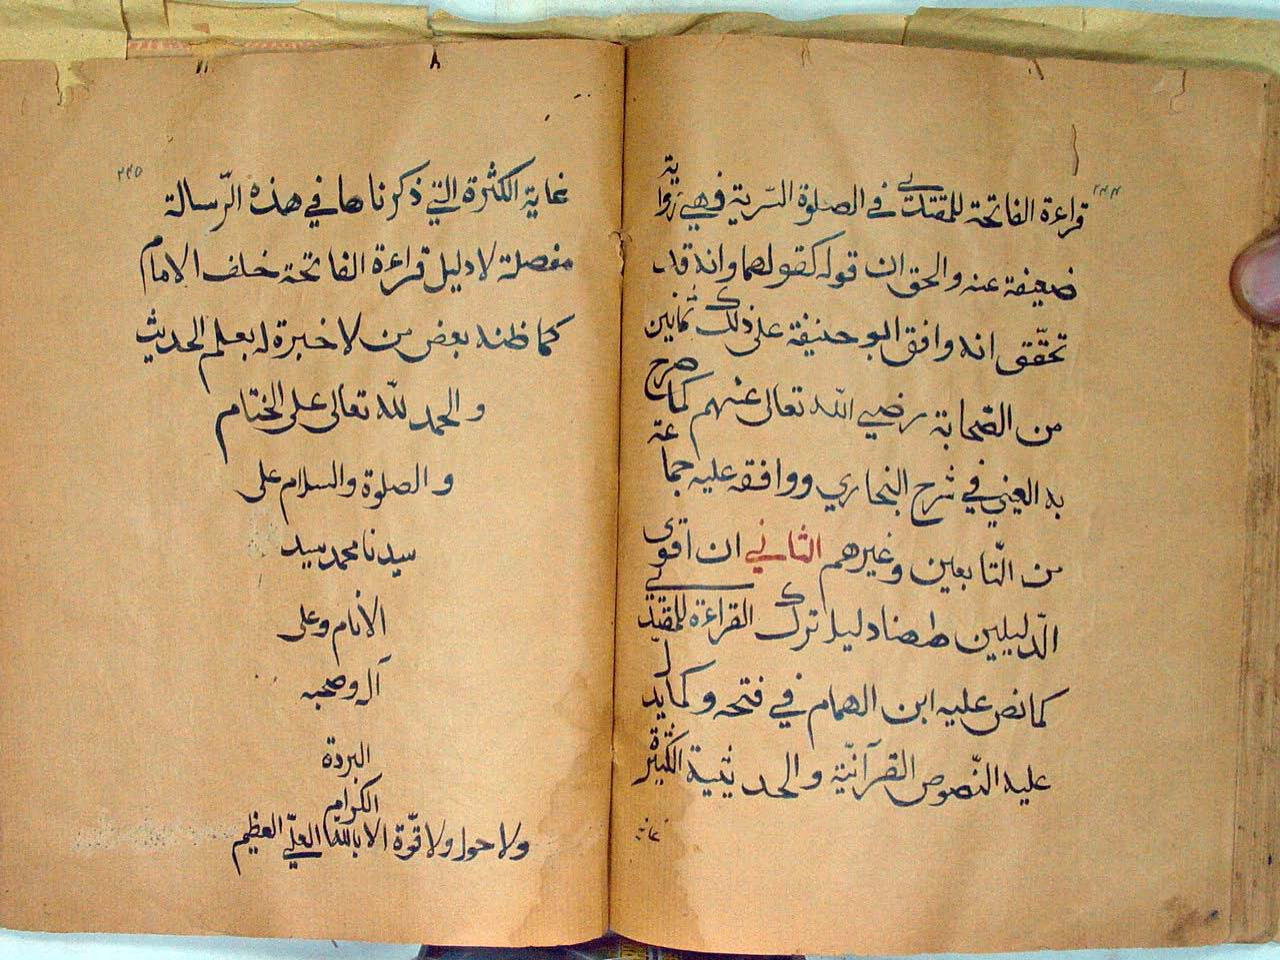 ٢٤٤
قراءة الفاتحة للمقتدي في الصلوة السّرية فهي رواية
ضعيفة عنه والحق ان قوله كقولهما وانه قد
تحقّق انه وافق ابو حنيفة على ذلك ثمانين
من الصّحابة رضي اللّه تعالى عنهم كما صرح
به العيني في شرح البخاري ووافقه عليه جماعة
من التّابعين وغيرهم الثاني ان اقوى
الدّليلين ههنا دليل ترك القراءة للمقتدي
كما نص عليه ابن الهمام في فتحه وكما يدل
عليه النّصوص القرآنيّة والحديثية الكثيرة
غاية
٢٤٥
غاية الكثرة التي ذكرناها في هذه الرّسالة
مفصلة لا دليل قراءة الفاتحة خلف الامام
كما ظنه بعض من لا خبرة له بعلم الحديث
والحمد للّه تعالى على الختام
والصلوة والسلام على
سيدنا محمد سيد
الأنام وعلى
آله وصحبه
البررة
الكرام
ولا حول ولا قوّة الا باللّه العليّ العظيم